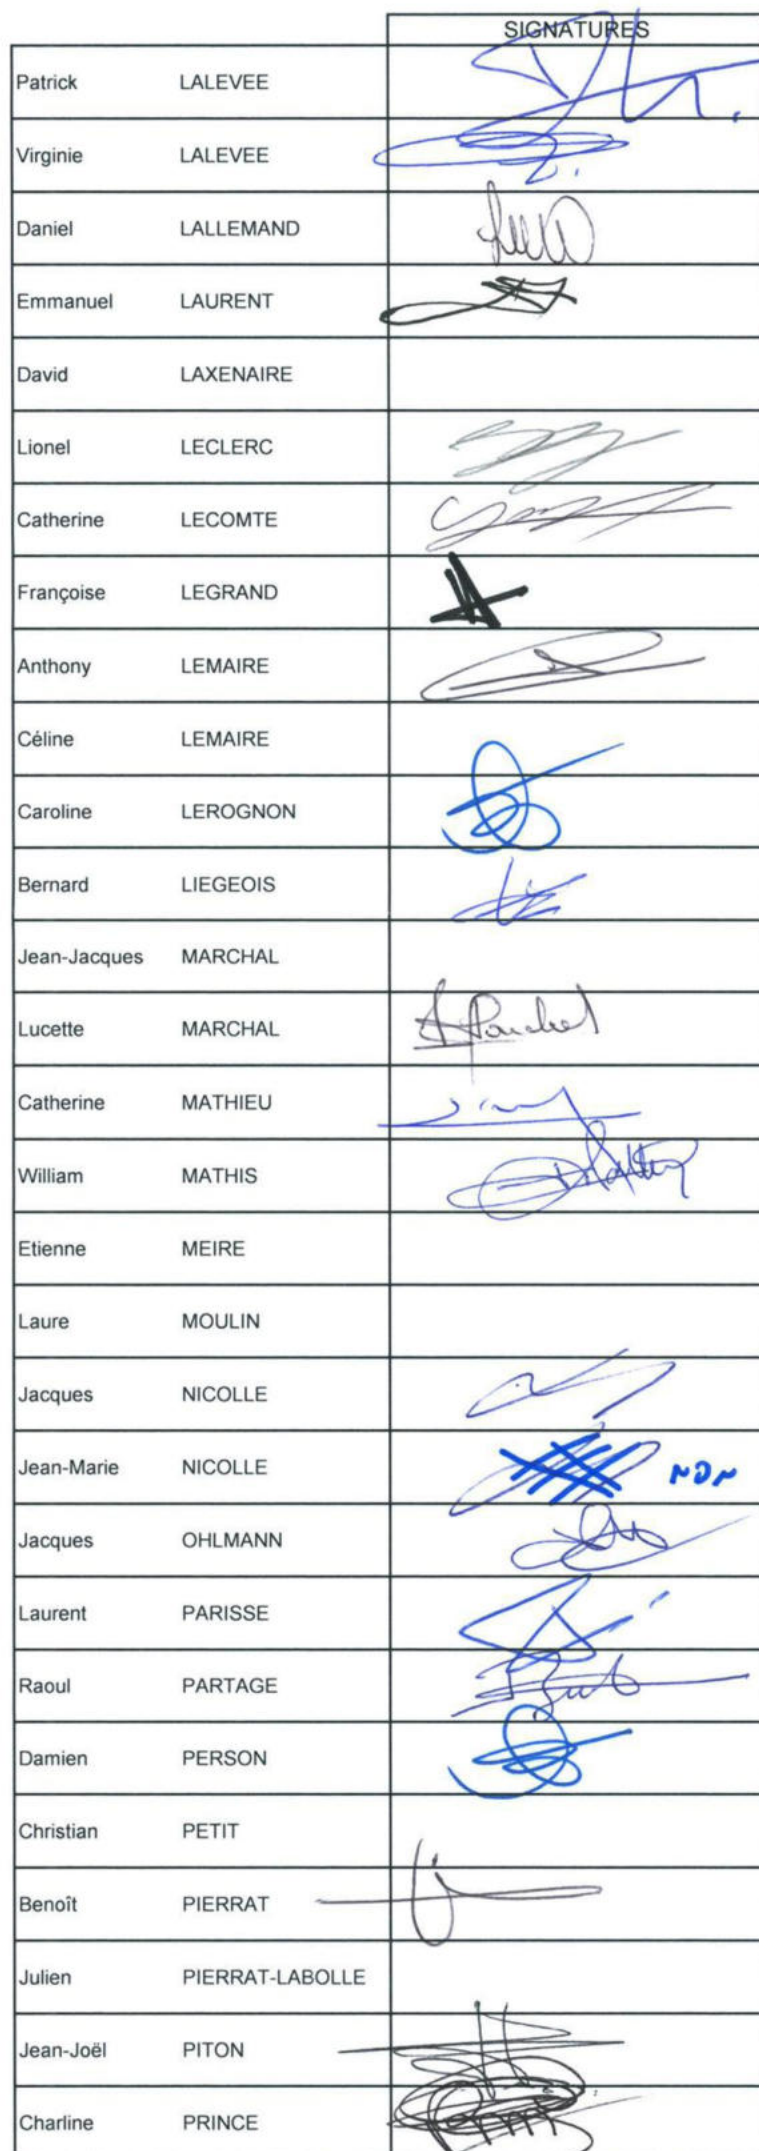 SIGNATURES
Patrick LALEVEE
Virginie LALEVEE
Daniel LALLEMAND
Emmanuel LAURENT
David LAXENAIRE
Lionel LECLERC
Catherine LECOMTE
Françoise LEGRAND
Anthony LEMAIRE
Céline LEMAIRE
Caroline LEROGNON
Bernard LIEGEOIS
Jean-Jacques MARCHAL
Lucette MARCHAL
Catherine MATHIEU
William MATHIS
Etienne MEIRE
Laure MOULIN
Jacques NICOLLE
Jean-Marie NICOLLE
Jacques OHLMANN
Laurent PARISSE
Raoul PARTAGE
Damien PERSON
Christian PETIT
Benoît PIERRAT
Julien PIERRAT-LABOLLE
Jean-Joël PITON
Charline PRINCE